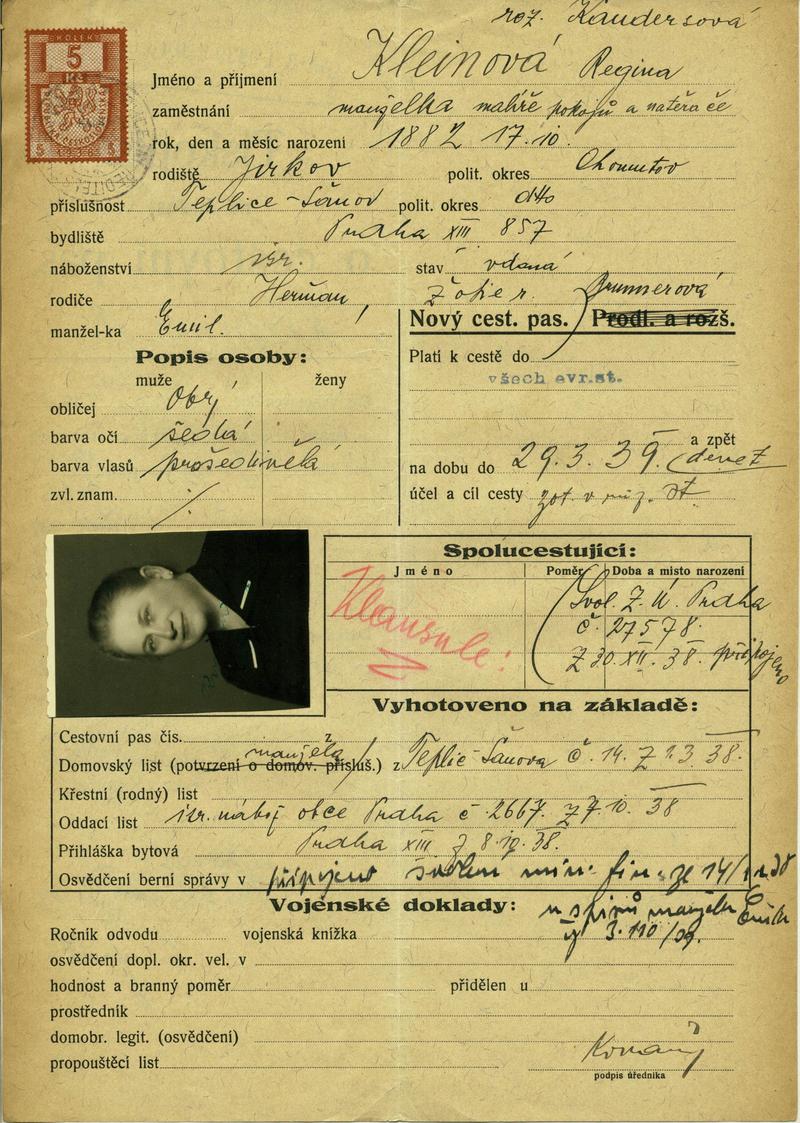 roz. Kaudersová
KOLEK
5
Kč
5 1938 5
Jméno a příjmení Kleinová Regina
zaměstnání manželka malíře pokojů a natěrače
rok, den a měsíc narození 1882 17.10.
rodiště Jirkov polit. okres Chomutov
příslušnost Teplice-Šanov polit. okres dtto
bydliště Praha XIII 857
náboženství isr. stav vdaná
rodiče Heřman, Žofie r. Brunnerová
manžel-ka Emil.
Nový cest. pas. Prodl. a rozš.
Popis osoby:
muže ženy
obličej obj
barva očí šedá
barva vlasů prošedivělá
zvl. znam. ./.
Platí k cestě do
všech evr.st.
a zpět
na dobu do 29.3.39.
účel a cíl cesty st
Spolucestující:
Jméno Poměr Doba a místo narození
Klausule!
Svol. Z. Ú. Praha
č. 27578
z 30. XII. 38. připojeno
Vyhotoveno na základě:
Cestovní pas čís. z
manžela
Domovský list (potvrzení o domov. přísluš.) z Teplic-Šanova č. 14. z 1.3.38.
Křestní (rodný) list
Oddací list isr. nábož obce Praha č 2667. z 7.10.38
Přihláška bytová Praha XIII z 8.10.38.
Osvědčení berní správy v připojeno svolen min. fin. ze 14/
Vojenské doklady:
u spisů manžela Emila
Ročník odvodu vojenská knížka
osvědčení dopl. okr. vel. v
hodnost a branný poměr přidělen u
prostředník
domobr. legit. (osvědčení)
propouštěcí list
podpis úředníka